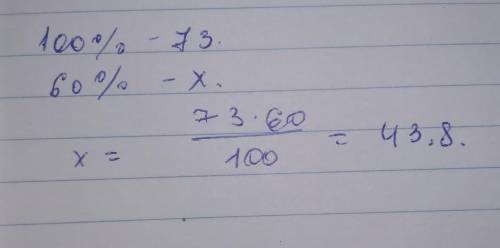 100% - 73.
60% - x.
x = 73·60/100 = 43,8.